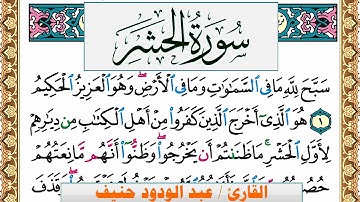 سُورَةُ الْحَشْرِ
سَبَّحَ لِلَّهِ مَا فِي السَّمَاوَاتِ وَمَا فِي الْأَرْضِ ۖ وَهُوَ الْعَزِيزُ الْحَكِيمُ
١ هُوَ الَّذِي أَخْرَجَ الَّذِينَ كَفَرُوا مِنْ أَهْلِ الْكِتَابِ مِن دِيَارِهِمْ
لِأَوَّلِ الْحَشْرِ ۚ مَا ظَنَنتُمْ أَن يَخْرُجُوا ۖ وَظَنُّوا أَنَّهُم مَّانِعَتُهُمْ
القارئ / عبد الودود حنيف